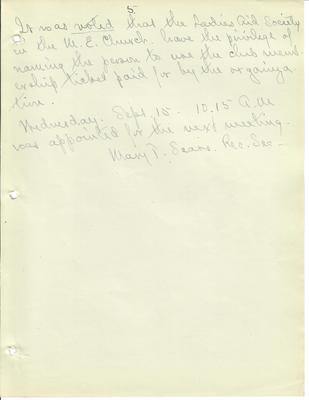 5
It was voted that the Ladies Aid Society
in the M. E. Church, have the privilege of
naming the person to use the club mem-
ership ticket paid for by the organiza-
tion.
Wednesday. Sept. 15 - 10.15 A.M
was appointed for the next meeting.
Mary T. Sears. Rec. Sec -